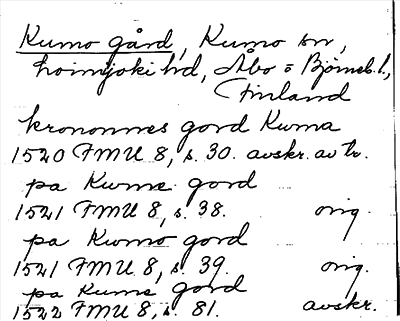 Kumo gård, Kumo sn,
Loimijoki hd, Åbo = Björneb. l.,
Finland
krononnes gord Kuma
1520 FMU 8, s. 30. avskr. av tr.
pa Kume gord
1521 FMU 8, s. 38. orig.
pa Kumo gord
1521 FMU 8, s. 39. orig.
pa Kume gord
1522 FMU 8, s. 81. avskr.